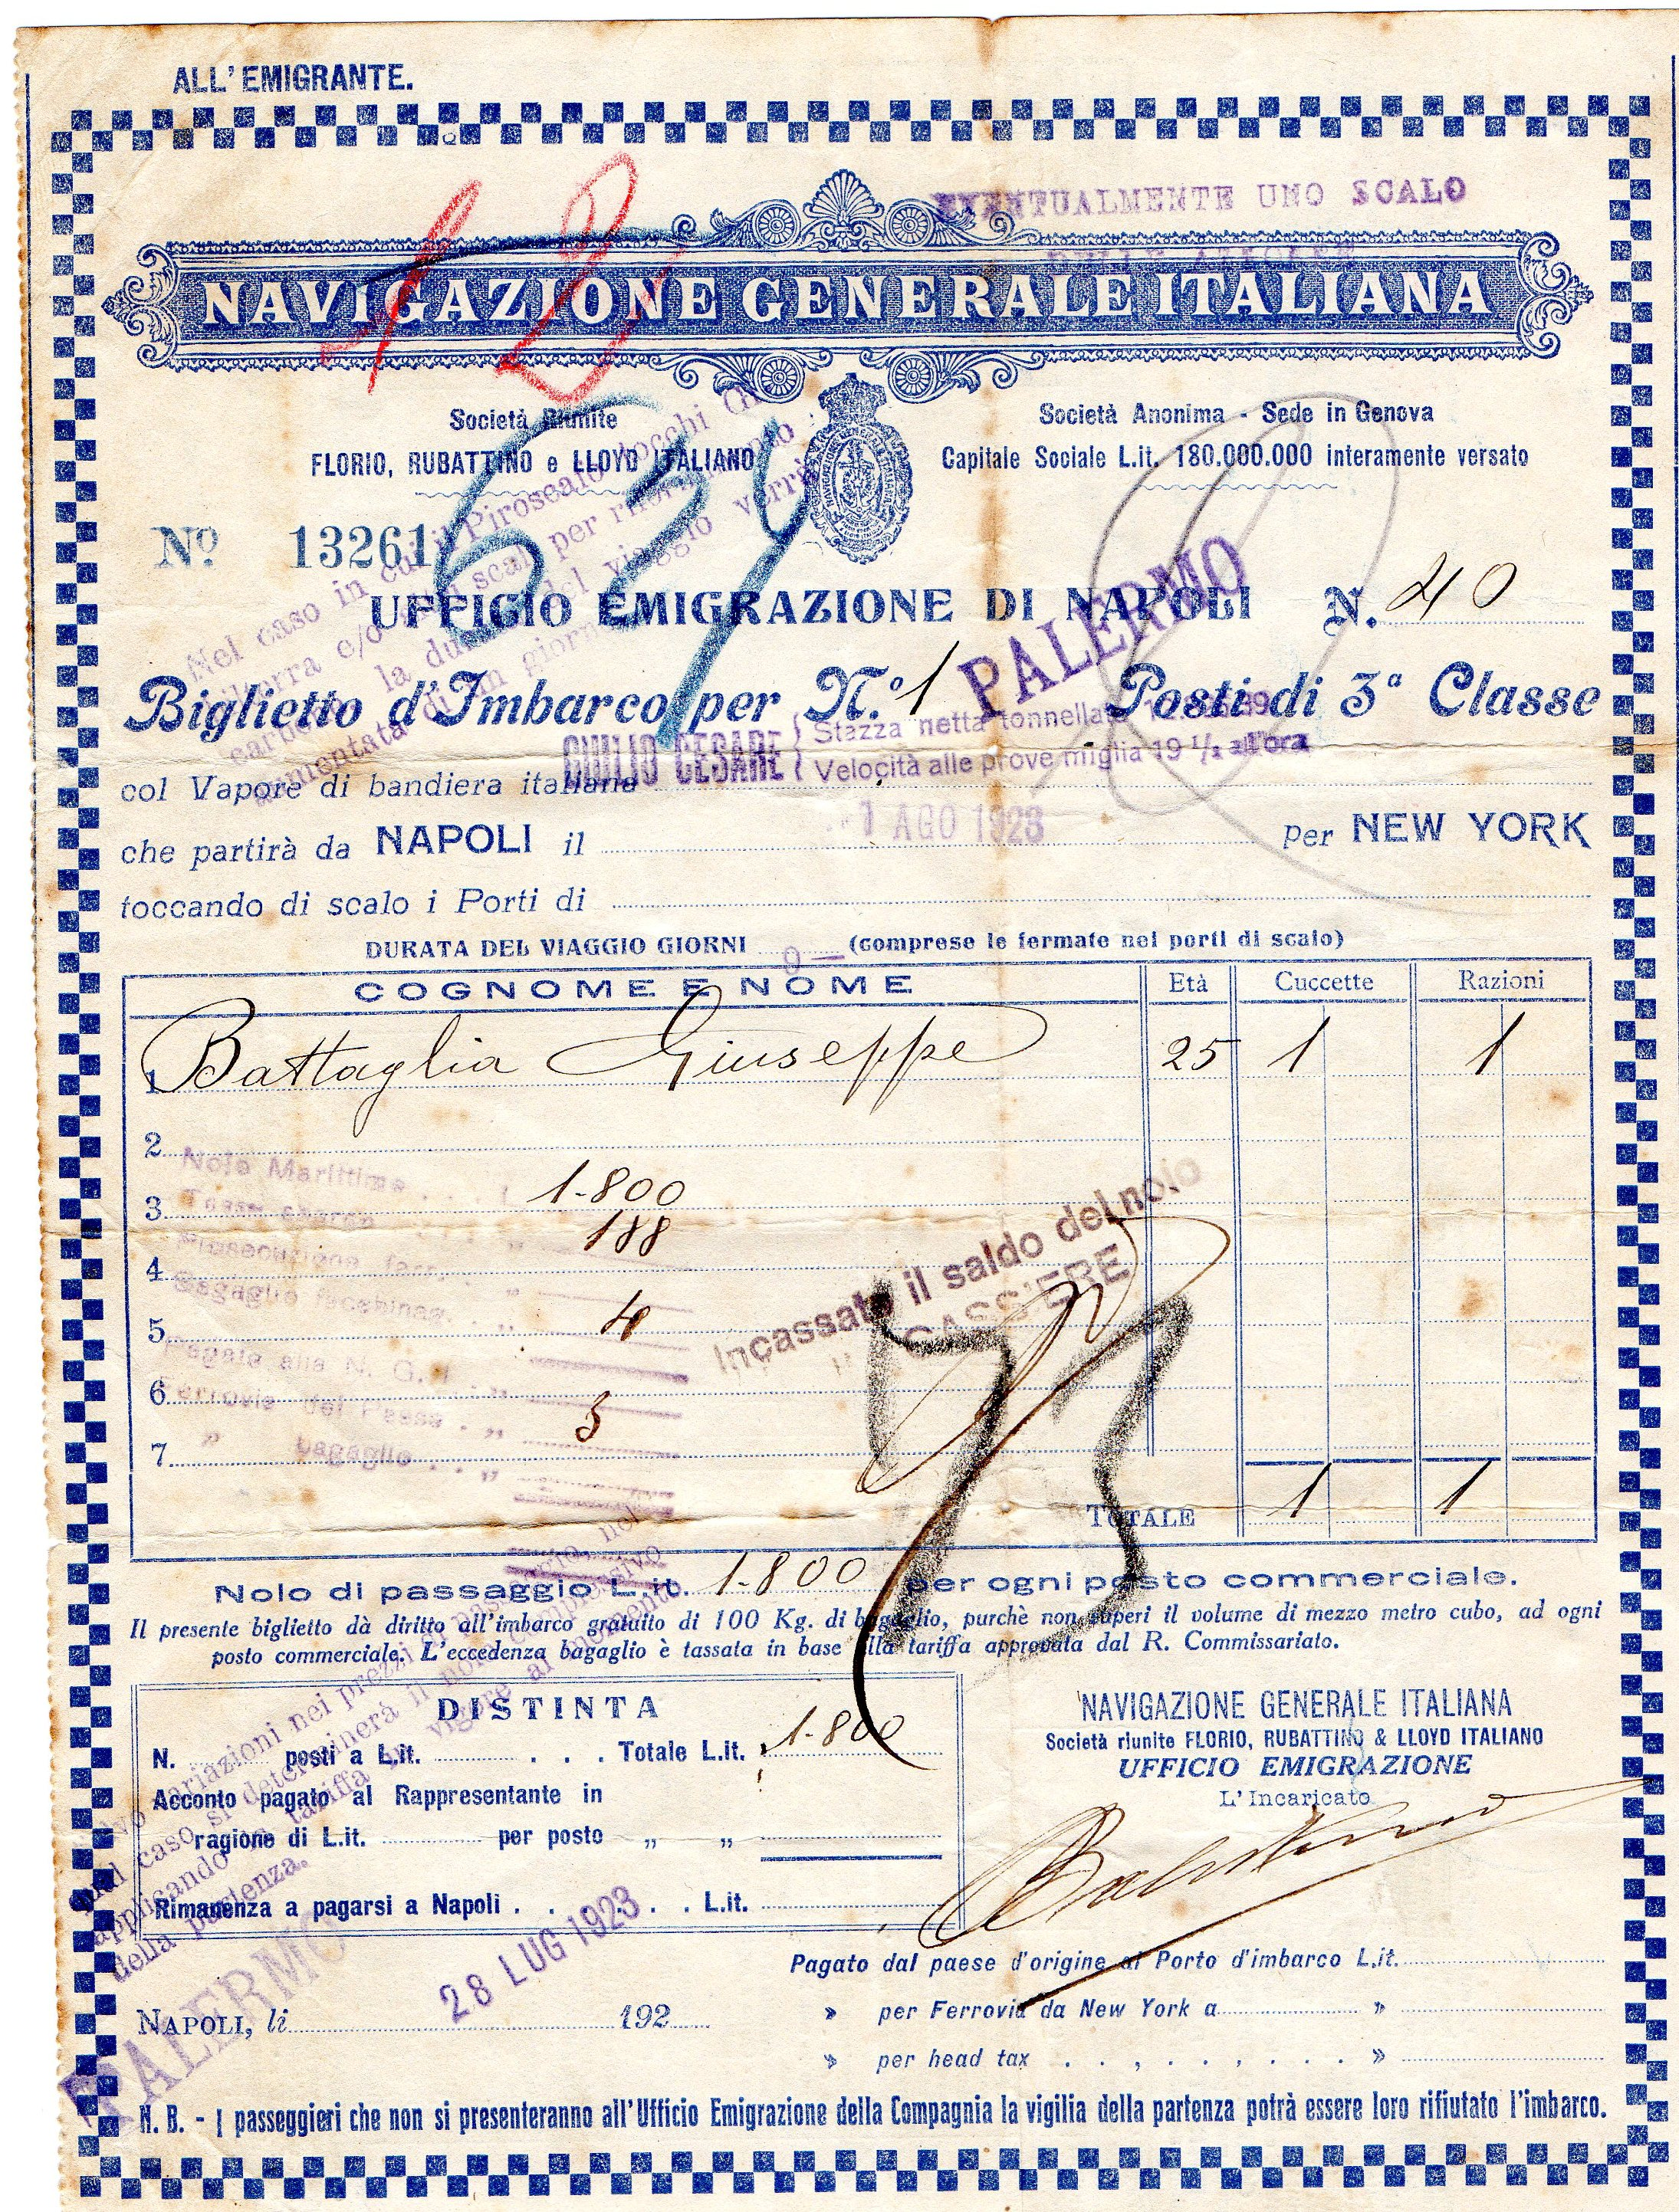 ALL' EMIGRANTE.
EVENTUALMENTE UNO SCALO
NAVIGAZIONE GENERALE ITALIANA
12
Società Riunite
FLORIO, RUBATTINO e LLOYD ITALIANO
Società Anonima - Sede in Genova
Capitale Sociale L.it. 180.000.000 interamente versato
No. 13261
634
UFFICIO EMIGRAZIONE DI NAPOLI N. 40
PALERMO
Nel caso in cui il Piroscafo tocchi
Biglietto d'Imbarco per N.º 1 Posti di 3ª Classe
GIULIO CESARE { Stazza netta tonnellate
Velocità alle prove miglia 19 1/2 all'ora
col Vapore di bandiera italiana
che partirà da NAPOLI il 1 AGO 1923 per NEW YORK
toccando di scalo i Porti di
DURATA DEL VIAGGIO GIORNI 9 (comprese le fermate nei porti di scalo)
COGNOME E NOME Età Cuccette Razioni
1. Battaglia Giuseppe 25 1 1
2.
Nolo Marittimo 1.800
3.
188
4.
Bagaglio
5. 4
Pagato alla N. G. I.
6.
Ferrovia del Paese
7. bagaglio
Incassato il saldo del nolo
IL CASSIERE
73
TOTALE 1 1
Nolo di passaggio L.it. 1.800 per ogni posto commerciale.
Il presente biglietto dà diritto all'imbarco gratuito di 100 Kg. di bagaglio, purchè non superi il volume di mezzo metro cubo, ad ogni
posto commerciale. L'eccedenza bagaglio è tassata in base alla tariffa approvata dal R. Commissariato.
DISTINTA
N. posti a L.it. . . . Totale L.it. 1.800
Acconto pagato al Rappresentante in
ragione di L.it. per posto „ „
Rimanenza a pagarsi a Napoli . . . . . L.it.
variazioni nei prezzi
nel caso si determinerà il nolo
applicando la tariffa in vigore al momento
della partenza.
NAVIGAZIONE GENERALE ITALIANA
Società riunite FLORIO, RUBATTINO & LLOYD ITALIANO
UFFICIO EMIGRAZIONE
L'Incaricato
PALERMO
28 LUG 1923
NAPOLI, li 192
Pagato dal paese d'origine al Porto d'imbarco L.it.
» per Ferrovia da New York a »
» per head tax . . , . . . . . . »
N. B. - I passeggieri che non si presenteranno all'Ufficio Emigrazione della Compagnia la vigilia della partenza potrà essere loro rifiutato l'imbarco.